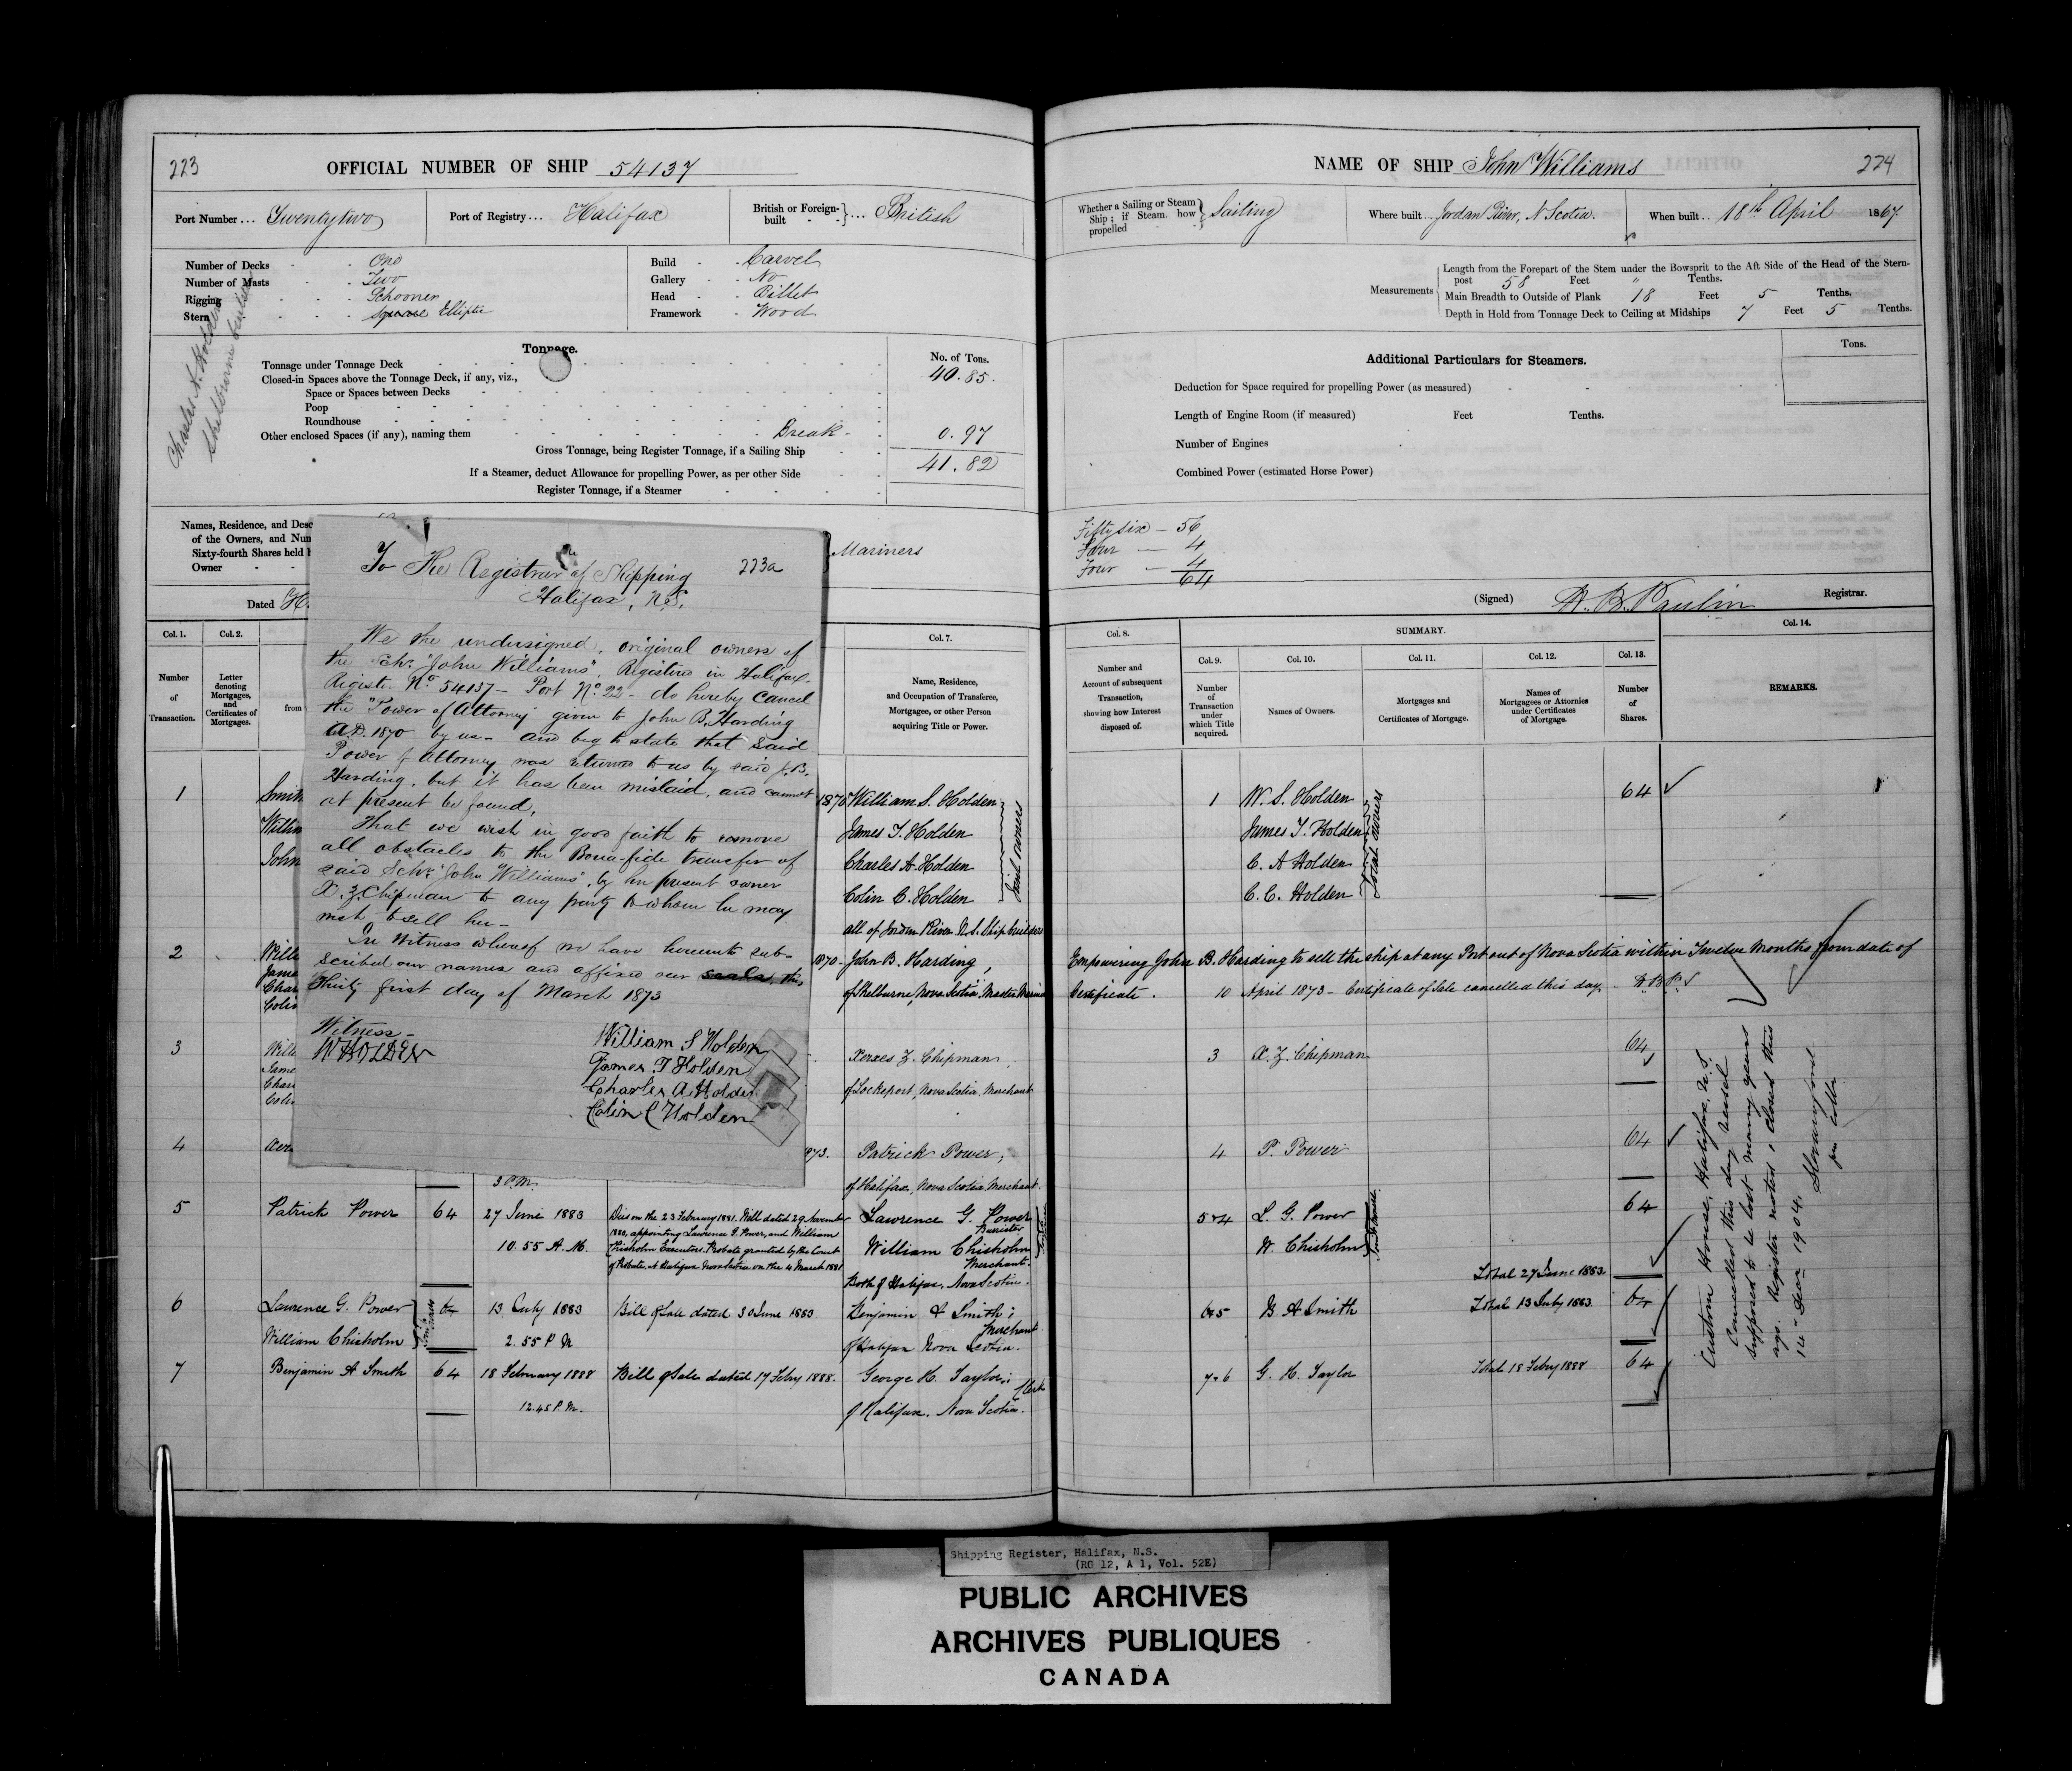 223
OFFICIAL NUMBER OF SHIP 54137
Port Number ... Twentytwo
Port of Registry ... Halifax
British or Foreign-built ... British
Number of Decks - - One
Number of Masts - - Two
Rigging - - - Schooner
Stern - - - Square Elliptic
Build - - Carvel
Gallery - - No
Head - - Billet
Framework - Wood
Charles A. Holden
Shelbourne
Tonnage.
No. of Tons.
Tonnage under Tonnage Deck 40.85.
Closed-in Spaces above the Tonnage Deck, if any, viz.,
Space or Spaces between Decks
Poop
Roundhouse
Other enclosed Spaces (if any), naming them Break - 0.97
Gross Tonnage, being Register Tonnage, if a Sailing Ship 41.82
If a Steamer, deduct Allowance for propelling Power, as per other Side
Register Tonnage, if a Steamer
Names, Residence, and Desc
of the Owners, and Num
Sixty-fourth Shares held
Owner - -
Mariners
Dated H.
To The Registrar of Shipping 223a
Halifax, N.S.
We the undersigned, original owners of
the Schr. "John Williams", Registered in Halifax.
Regist. No. 54137 - Port No. 22 - do hereby Cancel
the "Power of Attorney" given to John B. Harding
A.D. 1870 by us - and beg to state that said
Power of Attorney was returned to us by said J.B.
Harding, but it has been mislaid, and cannot
at present be found,
That we wish in good faith to remove
all obstacles to the Bona-fide transfer of
said Schr. "John Williams", by her present owner
X. Z. Chipman to any party to whom he may
wish to sell her -
In Witness whereof we have hereunto sub-
scribed our names and affixed our seals, this
Thirty first day of March 1873
Witness -
W HOLDEN
William S Holden
James T Holden
Charles A Holden
Colin C Holden
Col. 1.
Number of Transaction.
Col. 2.
Letter denoting Mortgages, and Certificates of Mortgages.
from
Col. 7.
Name, Residence, and Occupation of Transferee, Mortgagee, or other Person acquiring Title or Power.
1 Smith 1870 William S. Holden
Willia James T. Holden
John Charles A. Holden
Colin C. Holden
Joint owners
all of Jordan River N.S. Ship builders
2 Willi 1870 - John B. Harding,
Jame
Char of Shelburne, Nova Scotia, Master Mariner
Colin
3 Willi Xerxes Z. Chipman
Jame
Char of Lockeport, Nova Scotia, Merchant
Colin
4 Xerx 1873. Patrick Power,
3 P.M. of Halifax, Nova Scotia Merchant.
5 Patrick Power 64 27 June 1883 Died on the 23 February 1881. Will dated 29 November Lawrence G. Power
1880, appointing Lawrence G. Power, and William Barrister
10.55 A.M. Chisholm Executors. Probate granted by the Court William Chisholm
of Probate, at Halifax Nova Scotia on the 4 March 1881 Merchant.
Both of Halifax, Nova Scotia.
6 Lawrence G. Power 64 13 July 1883 Bill of Sale dated 30 June 1883 Benjamin A Smith;
Merchant
William Chisholm 2.55 P M of Halifax Nova Scotia.
7 Benjamin A Smith 64 18 February 1888 Bill of Sale dated 17 Feby 1888. George H. Taylor;
Clerk
12.45 P.M. of Halifax, Nova Scotia.
NAME OF SHIP John Williams
224
Whether a Sailing or Steam Ship; if Steam how propelled Sailing
Where built ... Jordan River, N Scotia.
When built .. 18th April 1867
Measurements
Length from the Forepart of the Stem under the Bowsprit to the Aft Side of the Head of the Stern-
post 58 Feet " Tenths.
Main Breadth to Outside of Plank 18 Feet 5 Tenths.
Depth in Hold from Tonnage Deck to Ceiling at Midships 7 Feet 5 Tenths.
Additional Particulars for Steamers.
Tons.
Deduction for Space required for propelling Power (as measured)
Length of Engine Room (if measured) Feet Tenths.
Number of Engines
Combined Power (estimated Horse Power)
Fifty six - 56
Four - 4
Four - 4
64
(Signed) Registrar.
Col. 8.
Number and Account of subsequent Transaction, showing how Interest disposed of.
SUMMARY.
Col. 9.
Number of Transaction under which Title acquired.
Col. 10.
Names of Owners.
Col. 11.
Mortgages and Certificates of Mortgage.
Col. 12.
Names of Mortgagees or Attornies under Certificates of Mortgage.
Col. 13.
Number of Shares.
Col. 14.
REMARKS.
1 W. S. Holden 64
James T. Holden
C. A Holden
C. C. Holden
Empowering John B. Harding to sell the ship at any Port out of Nova Scotia within Twelve Months from date of
Certificate. 10 April 1873 - Certificate of Sale cancelled this day -
3 X. Z. Chipman 64
4 P. Power 64
5 & 4 L. G. Power 64
W. Chisholm
Total 27 June 1883.
6 & 5 B A Smith Total 13 July 1883 64
7 & 6 G. H. Taylor Total 18 Feby 1888 64
Custom House, Halifax, N.S.
Cancelled this day Vessel
supposed to be lost many years
ago. Register noted & closed this
14 - Decr 1904.
Shipping Register, Halifax, N.S.
(RG 12, A 1, Vol. 52E)
PUBLIC ARCHIVES
ARCHIVES PUBLIQUES
CANADA